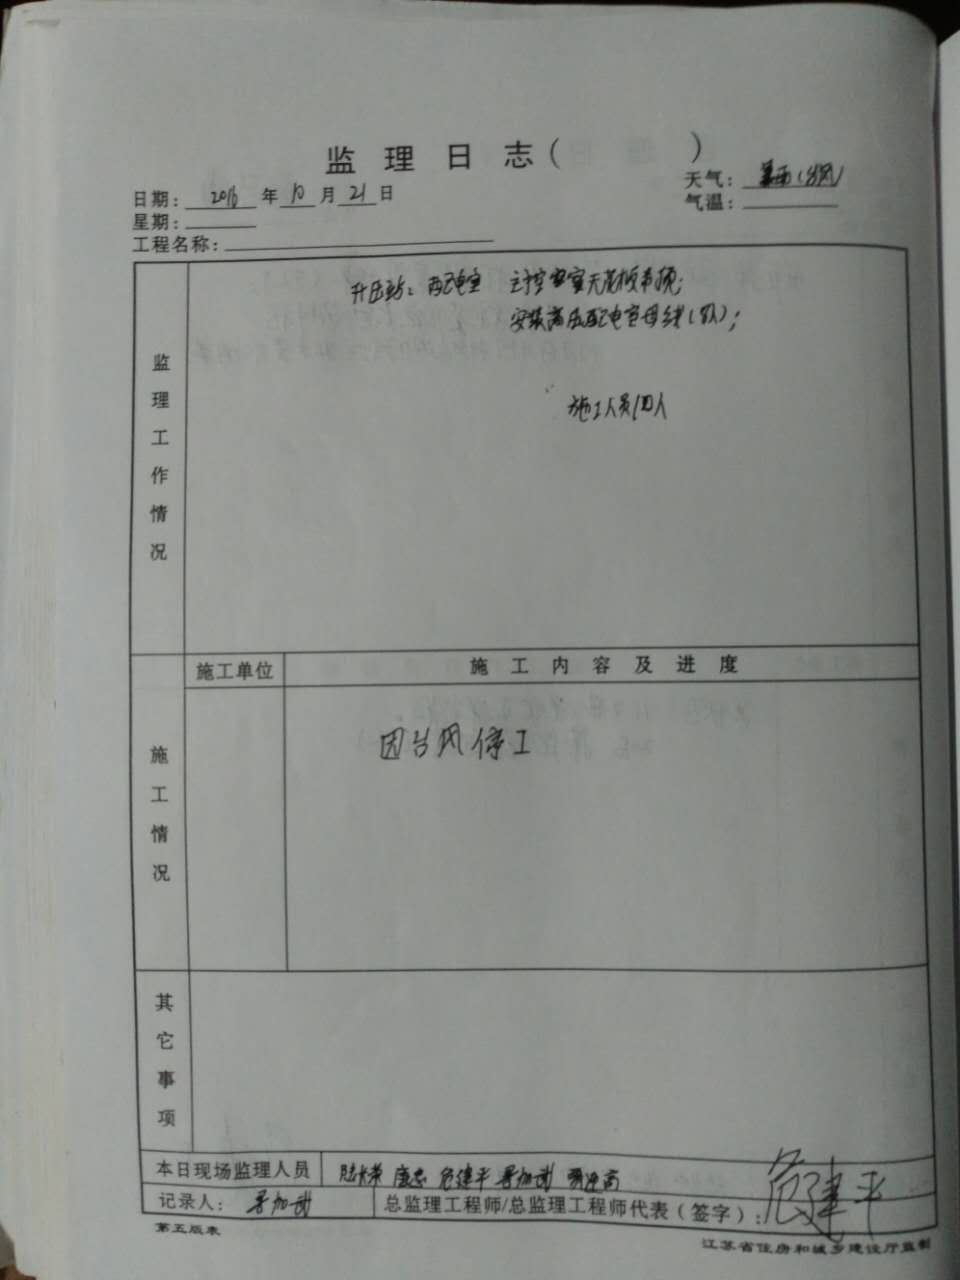 监理日志( )
天气：暴雨(台风)
日期：2016年10月21日
气温：
星期：
工程名称：
监理工作情况
升压站：配电室 主控室天花板吊顶；
安装高压配电室母线(8人)；
施工人员10人
施工单位 施工内容及进度
施工情况
因台风停工
其它事项
本日现场监理人员 康忠 危建平
记录人：
总监理工程师/总监理工程师代表(签字)：危建平
第五版表
江苏省住房和城乡建设厅监制